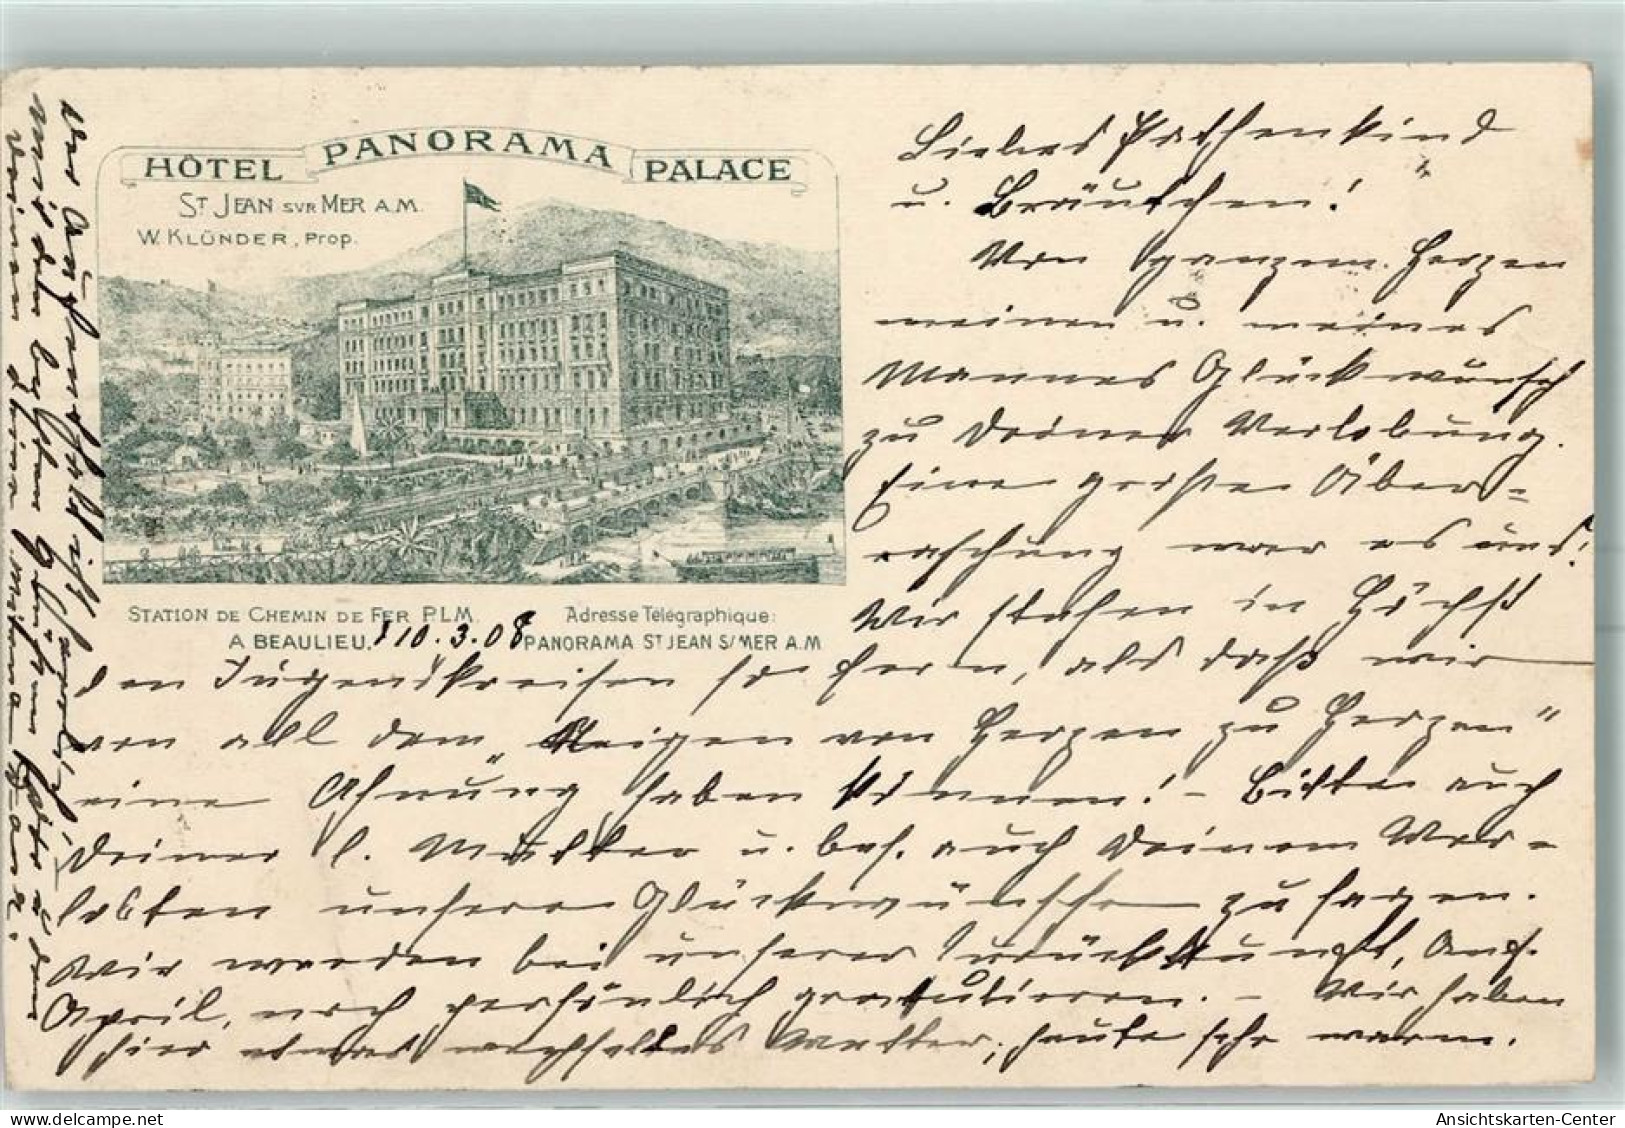 HÔTEL PANORAMA PALACE
ST JEAN SVR MER A.M.
W. KLÜNDER, PROP.
STATION DE CHEMIN DE FER P.L.M.
A BEAULIEU.
Adresse Télégraphique:
PANORAMA ST JEAN S/MER A.M
10.3.08
Liebes Pathenkind
u. Bräutchen!
Von ganzem Herzen
meinen u. meines
Mannes Glückwunsch
zu Deiner Verlobung.
Eine große Über-
raschung war es uns!
Wir stehen in Höchst
den Jugendkreisen so fern, als daß wir
von all dem „Reigen von Herzen zu Herzen"
eine Ahnung haben können! - Bitte auch
Deiner l. Mutter u. bes. auch Deinem Ver-
lobten unsere Glückwünsche zu sagen.
Wir werden bei unserer Zurückkunft, Anf.
April, noch persönlich gratulieren. - Wir haben
hier etwas wechselndes Wetter, heute sehr warm.
der Aufenthalt ist herrlich!
Mit den besten Grüßen